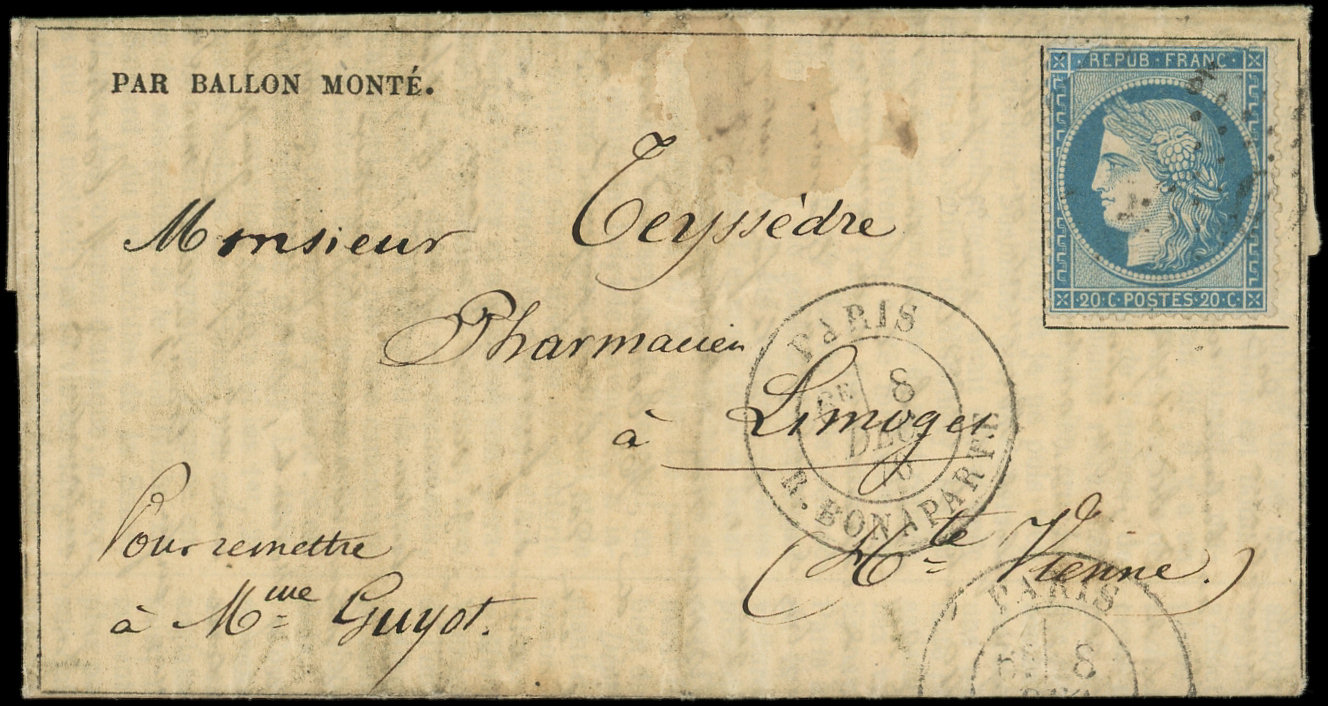 PAR BALLON MONTÉ.
REPUB FRANC
20·C·POSTES·20·C·
Monsieur Teyssèdre
Pharmacien
à Limoges
(Hte Vienne.)
Pour remettre
à Mme Guyot.
PARIS
6E 8
DEC
70
R. BONAPARTE
PARIS
8